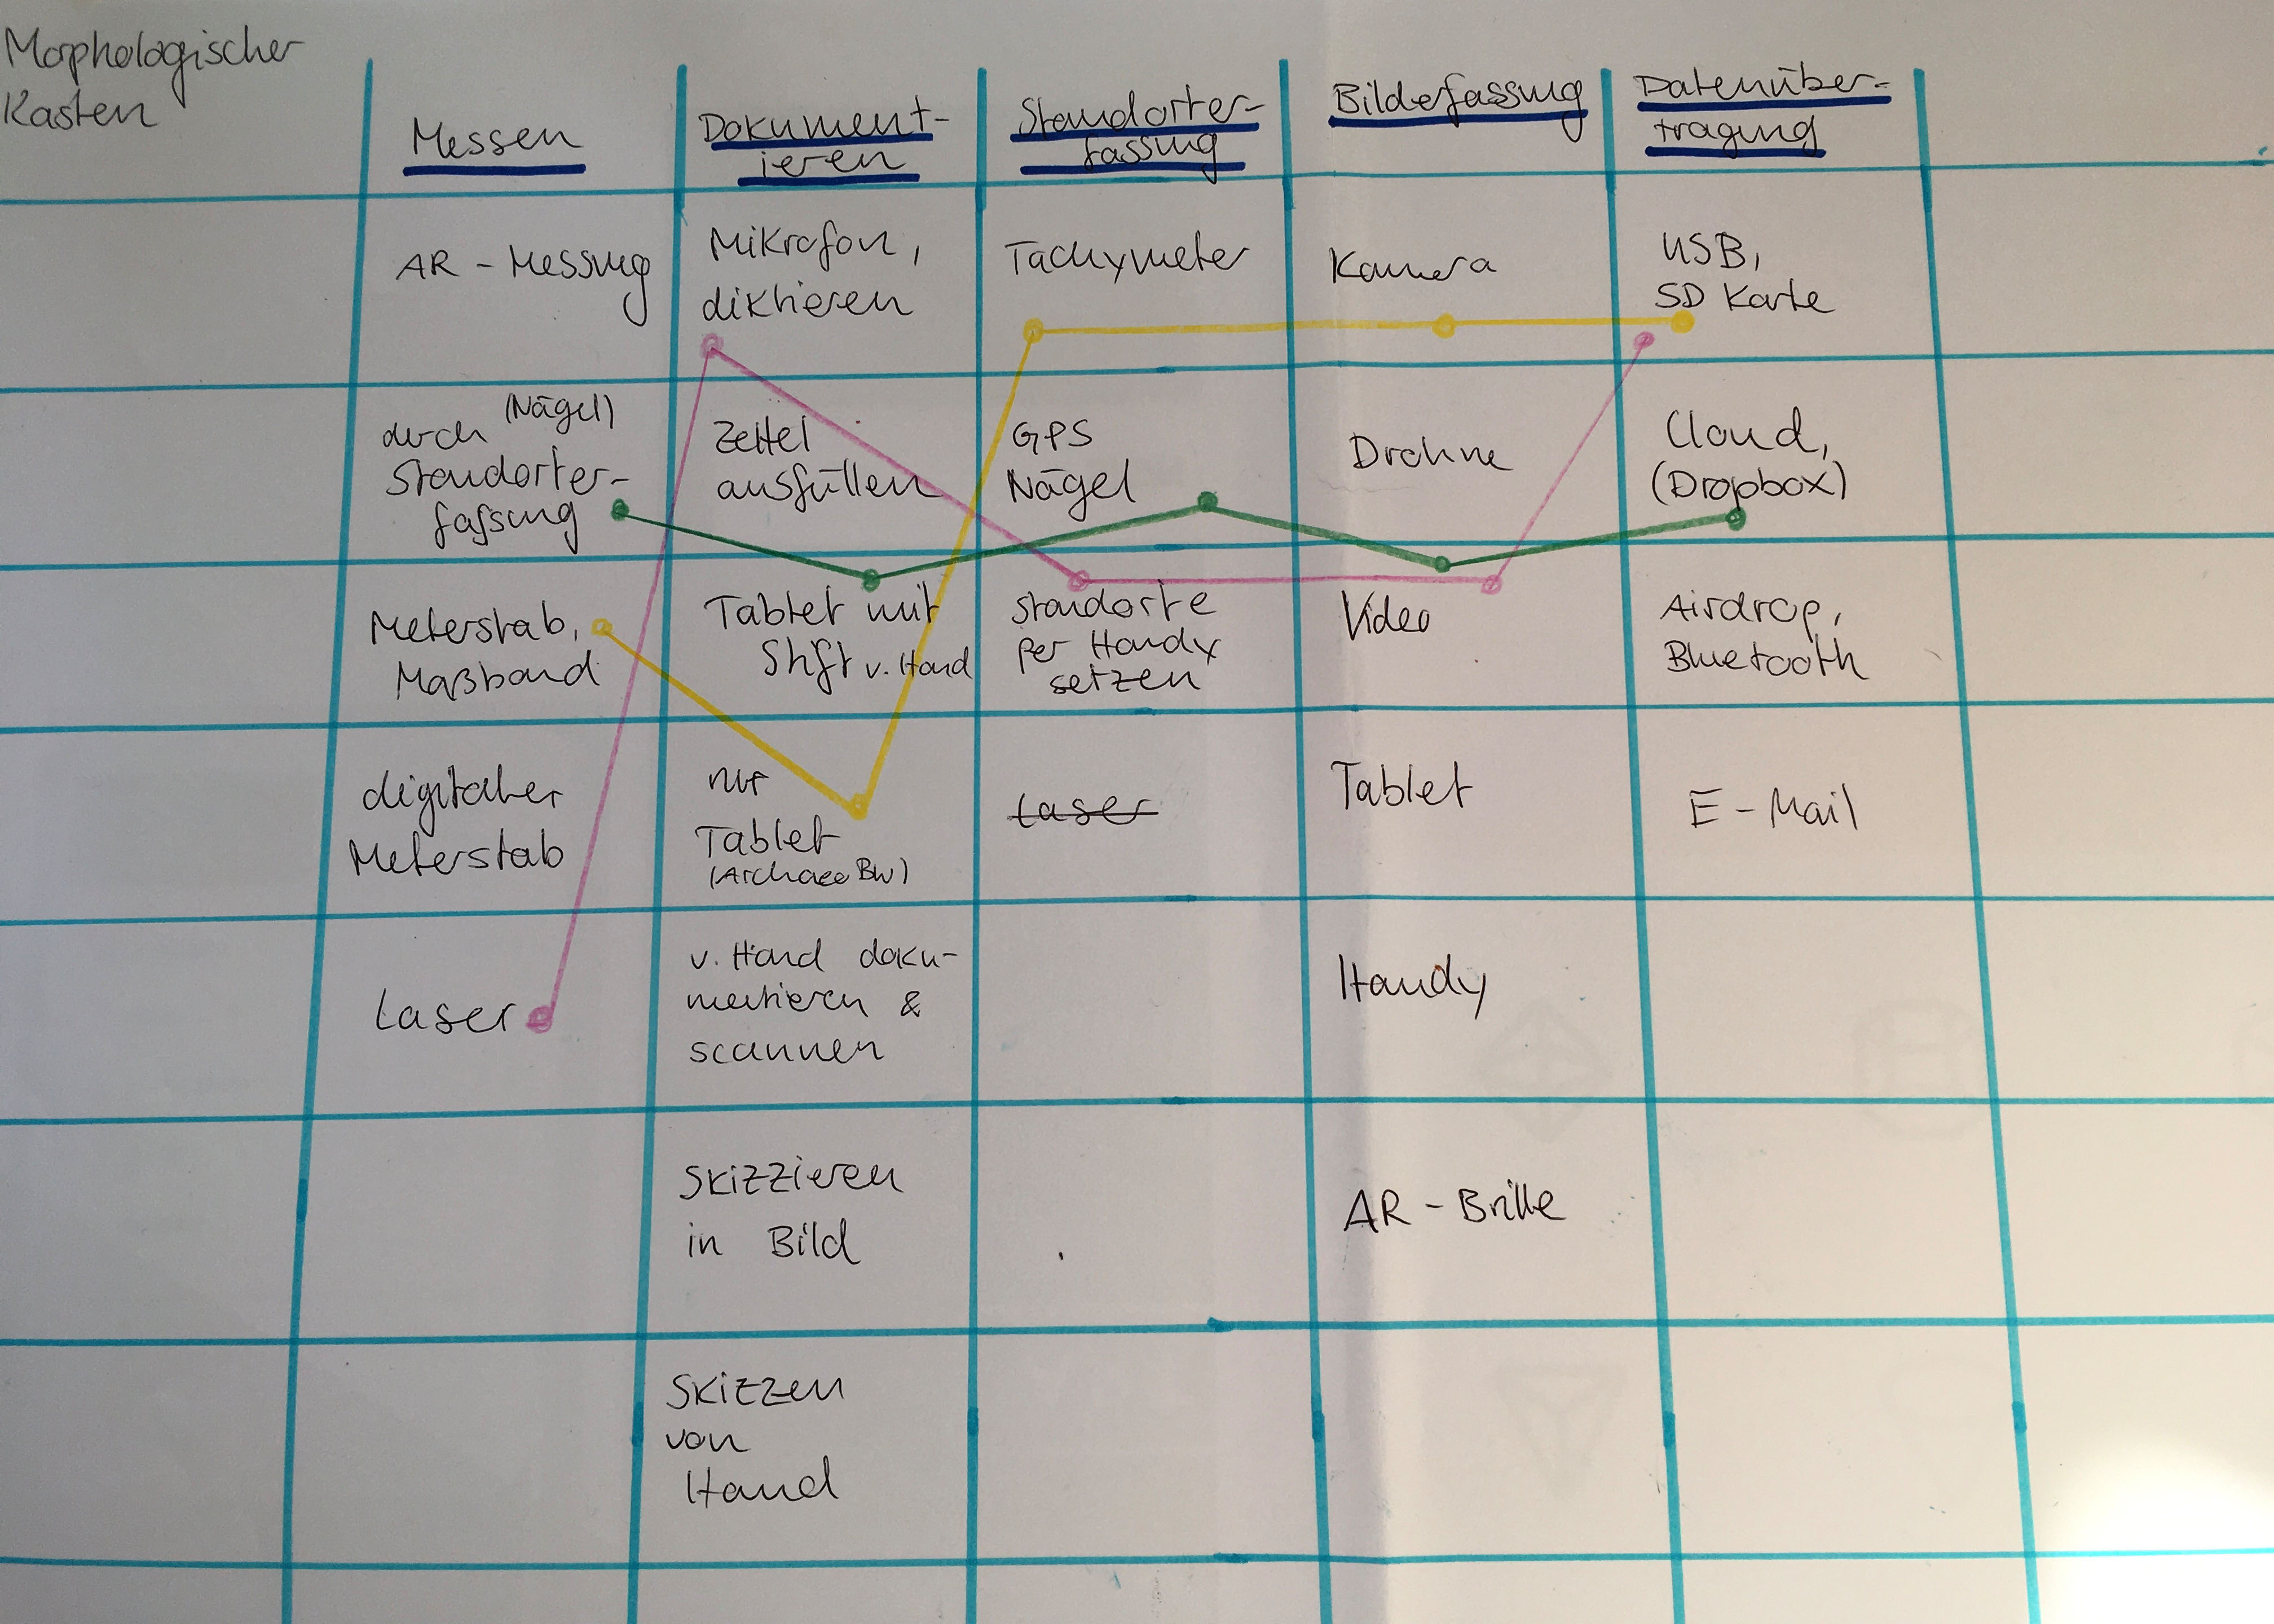 Morphologischer
Kasten
Messen
Dokument-
ieren
Standorter-
fassung
Bilderfassung
Datenüber-
tragung
AR - Messung
Mikrofon,
diktieren
Tachymeter
Kamera
USB,
SD Karte
durch (Nägel)
Standorter-
fassung
Zettel
ausfüllen
GPS
Nägel
Drohne
Cloud,
(Dropbox)
Meterstab,
Maßband
Tablet mit
Stift v. Hand
Standorte
per Handy
setzen
Video
Airdrop,
Bluetooth
digitaler
Meterstab
nur
Tablet
(Archaeo BW)
Laser
Tablet
E - Mail
Laser
v. Hand doku-
mentieren &
scannen
Handy
Skizzieren
in Bild
AR - Brille
Skizzen
von
Hand